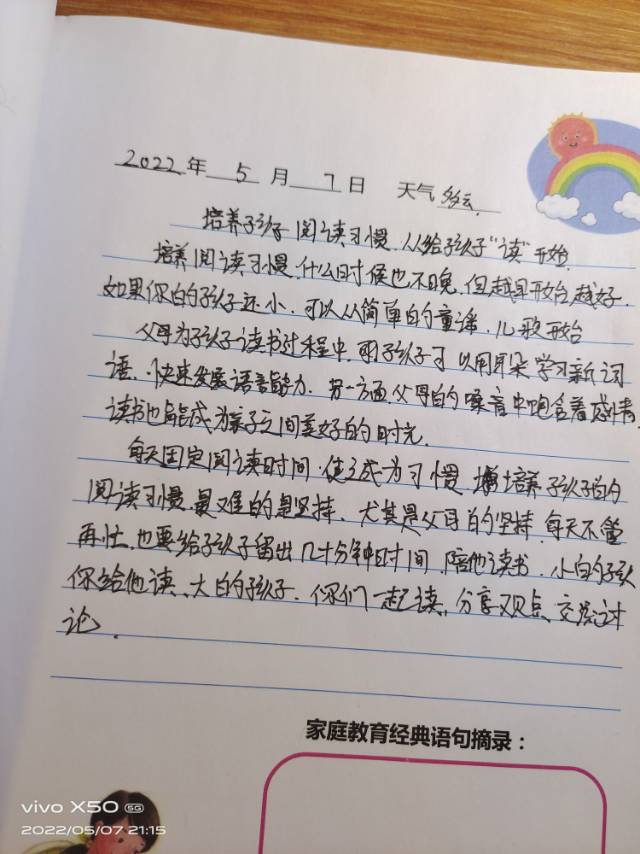 2022年 5 月 7日 天气 多云.
培养孩子阅读习惯,从给孩子“读”开始.
培养阅读习惯,什么时候也不晚,但越早开始越好.
如果你的孩子还小,可以从简单的童谣,儿歌开始
父母为孩子读书过程中,孩子可以用耳朵学习新词
语,快速发展语言能力.另一方面,父母的嗓音中饱含着感情,
读书也能成为亲子之间美好的时光.
每天固定阅读时间,使之成为习惯,培养孩子的
阅读习惯,最难的是坚持,尤其是父母的坚持,每天不管
再忙,也要给孩子留出几十分钟时间,陪他读书,小的孩子
你给他读、大的孩子,你们一起读,分享观点、交流讨
论.
家庭教育经典语句摘录:
vivo X50 5G
2022/05/07 21:15